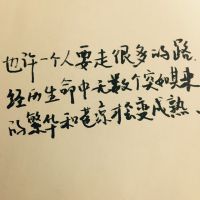 也许一个人要走很多的路.
经历生命中无数个突如其来
的繁华和苍凉才会变成熟、